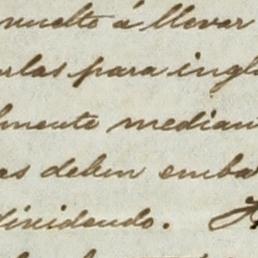 vuelto á llevar
arlas para ingl
lmente median
es deben emba
dividendo.